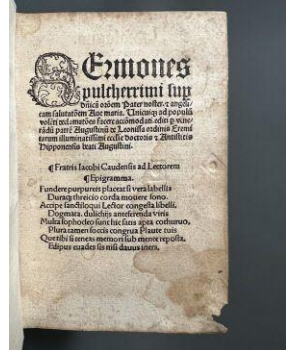 SErmones
pulcherrimi sup
dñicā orōem Pater noster. ⁊ angeli-
cam salutatōem Aue maria. Unicuiqȝ ad populū
facere accōmodati. editi ꝑ vene-
rādū patrē Augustinū de Leonissa ordinis Eremi
tarum illuminatissimi ecclīe doctoris ⁊ Antistitis
Hipponensis beati Augustini.
¶ Fratris Iacobi Caudensis ad Lectorem
¶ Epigramma.
Fundere purpureis placeat si vera labellis
Duraqȝ threicio corda mouere sono.
Accipe sanctiloqui Lector congesta libelli.
Dogmata. dulichijs anteferenda viris
Multa sophocleo sunt hic satis apta cothurno,
Plura tamen soccis congrua Plaute tuis
Que tibi si teneas memori sub mente reposta,
Edipus euades sis nisi dauus iners.